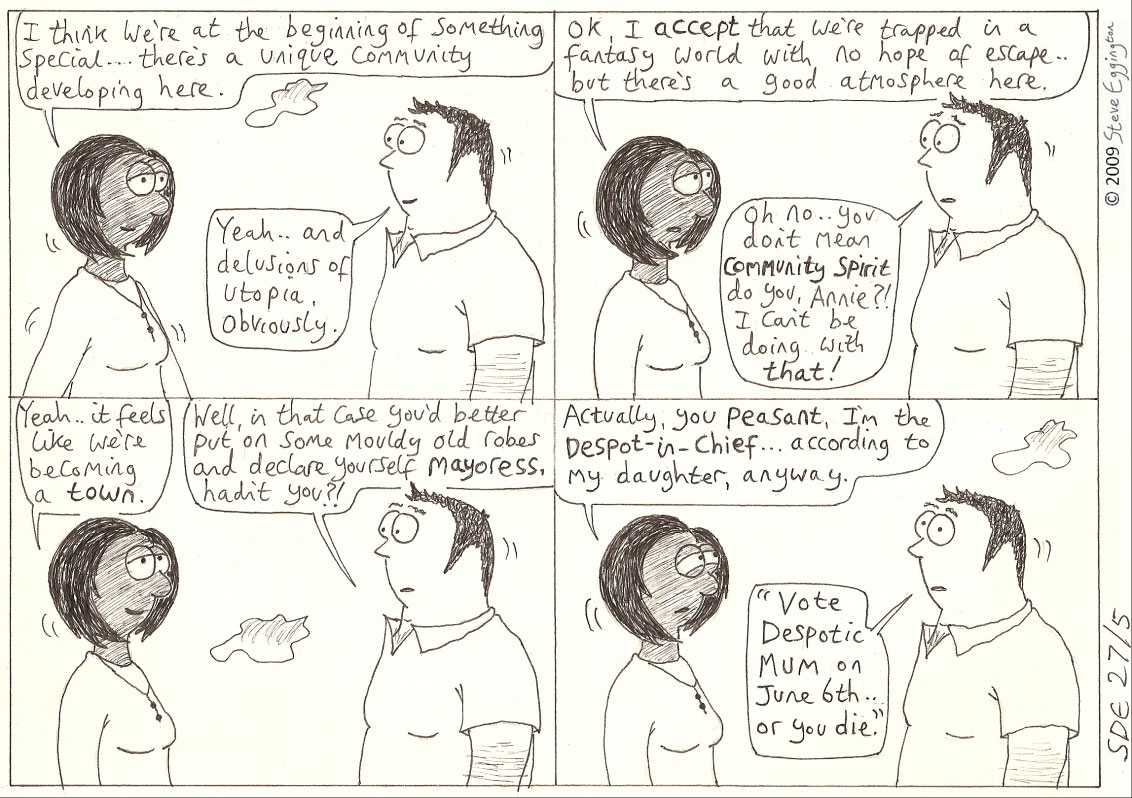 I think we're at the beginning of something
special.... there's a unique community
developing here.
Yeah.. and
delusions of
utopia,
obviously.
OK, I accept that we're trapped in a
fantasy world with no hope of escape..
but there's a good atmosphere here.
Oh no.. you
don't mean
community spirit
do you, Annie?!
I can't be
doing with
that!
Yeah.. it feels
like we're
becoming
a town.
Well, in that case you'd better
put on some mouldy old robes
and declare yourself mayoress,
hadn't you?!
Actually, you peasant, I'm the
Despot-in-Chief... according to
my daughter, anyway.
"Vote
Despotic
Mum on
June 6th..
or you die."
© 2009 Steve Eggington
SDE 27/5